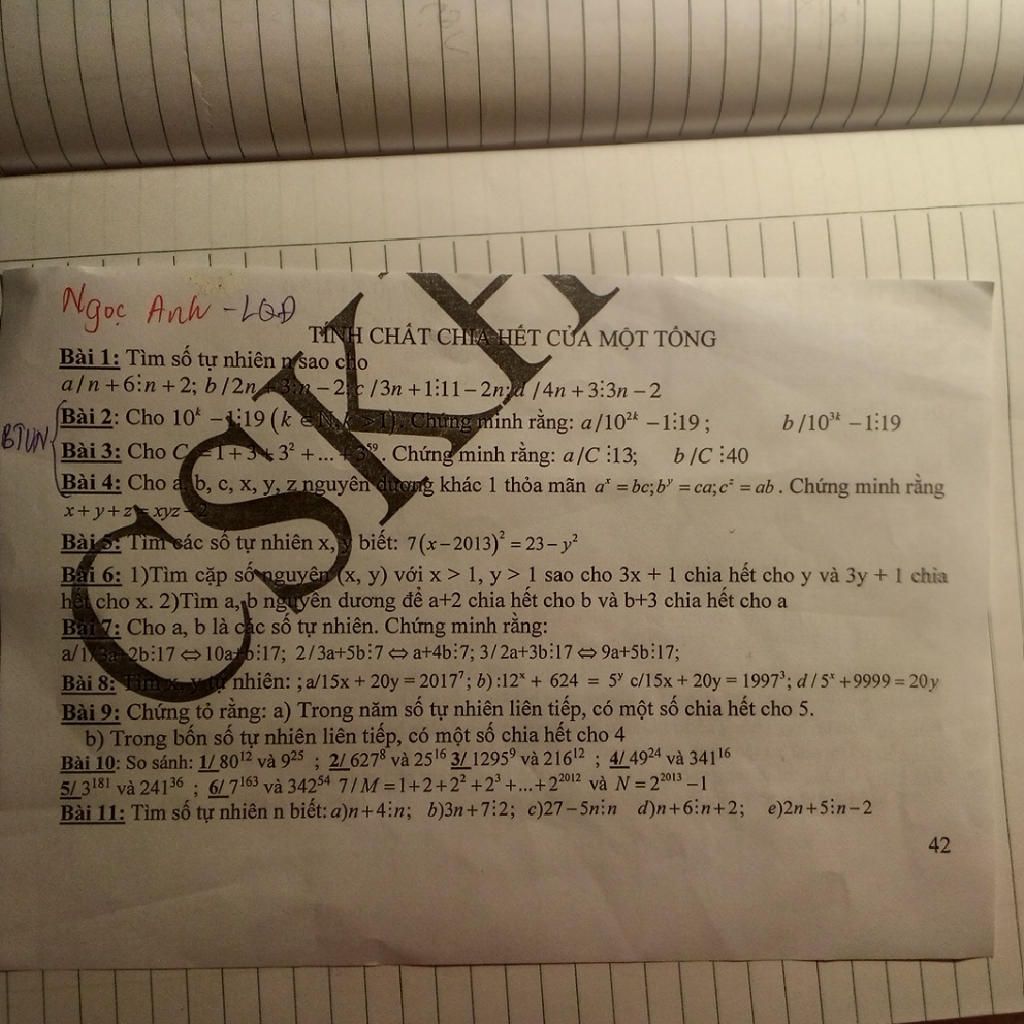 Ngọc Anh - LQĐ
CSKH
TÍNH CHẤT CHIA HẾT CỦA MỘT TỔNG
Bài 1: Tìm số tự nhiên n sao cho
a/n+6⋮n+2; b/2n+3⋮n−2; c/3n+1⋮11−2n; d/4n+3⋮3n−2
BTVN
Bài 2: Cho 10ᵏ −1⋮19 (k ∈ N, k >1). Chứng minh rằng: a/10²ᵏ −1⋮19 ; b/10³ᵏ −1⋮19
Bài 3: Cho C =1+3+3²+...+3⁵⁹. Chứng minh rằng: a/C ⋮13; b/C ⋮40
Bài 4: Cho a, b, c, x, y, z nguyên dương khác 1 thỏa mãn aˣ = bc; bʸ = ca; cᶻ = ab . Chứng minh rằng
x+y+z = xyz−2
Bài 5: Tìm các số tự nhiên x, y biết: 7(x−2013)² = 23−y²
Bài 6: 1)Tìm cặp số nguyên (x, y) với x > 1, y > 1 sao cho 3x + 1 chia hết cho y và 3y + 1 chia
hết cho x. 2)Tìm a, b nguyên dương để a+2 chia hết cho b và b+3 chia hết cho a
Bài 7: Cho a, b là các số tự nhiên. Chứng minh rằng:
a/ 1/ 3a+2b⋮17 ⇔ 10a+b⋮17; 2/3a+5b⋮7 ⇔ a+4b⋮7; 3/ 2a+3b⋮17 ⇔ 9a+5b⋮17;
Bài 8: Tìm x, y tự nhiên: ; a/15x + 20y = 2017⁷ ; b) :12ˣ + 624 = 5ʸ c/15x + 20y = 1997³ ; d / 5ˣ +9999 = 20y
Bài 9: Chứng tỏ rằng: a) Trong năm số tự nhiên liên tiếp, có một số chia hết cho 5.
b) Trong bốn số tự nhiên liên tiếp, có một số chia hết cho 4
Bài 10: So sánh: 1/ 80¹² và 9²⁵ ; 2/ 627⁸ và 25¹⁶ 3/ 1295⁹ và 216¹² ; 4/ 49²⁴ và 341¹⁶
5/ 3¹⁸¹ và 241³⁶ ; 6/ 7¹⁶³ và 342⁵⁴ 7/ M =1+2+2²+2³+...+2²⁰¹² và N = 2²⁰¹³ −1
Bài 11: Tìm số tự nhiên n biết: a)n+4⋮n; b)3n+7⋮2; c)27−5n⋮n d)n+6⋮n+2; e)2n+5⋮n−2
42